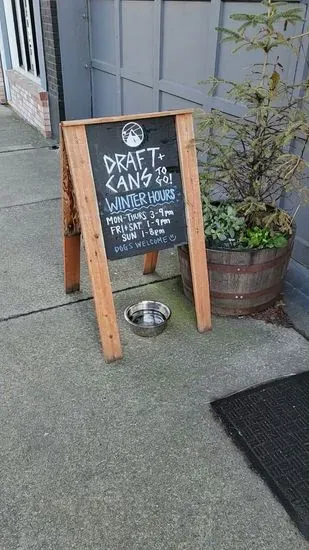 DRAFT +
CANS TO GO!
WINTER HOURS
MON-THURS 3-9PM
FRI + SAT 1-9PM
SUN 1-8PM
DOGS WELCOME